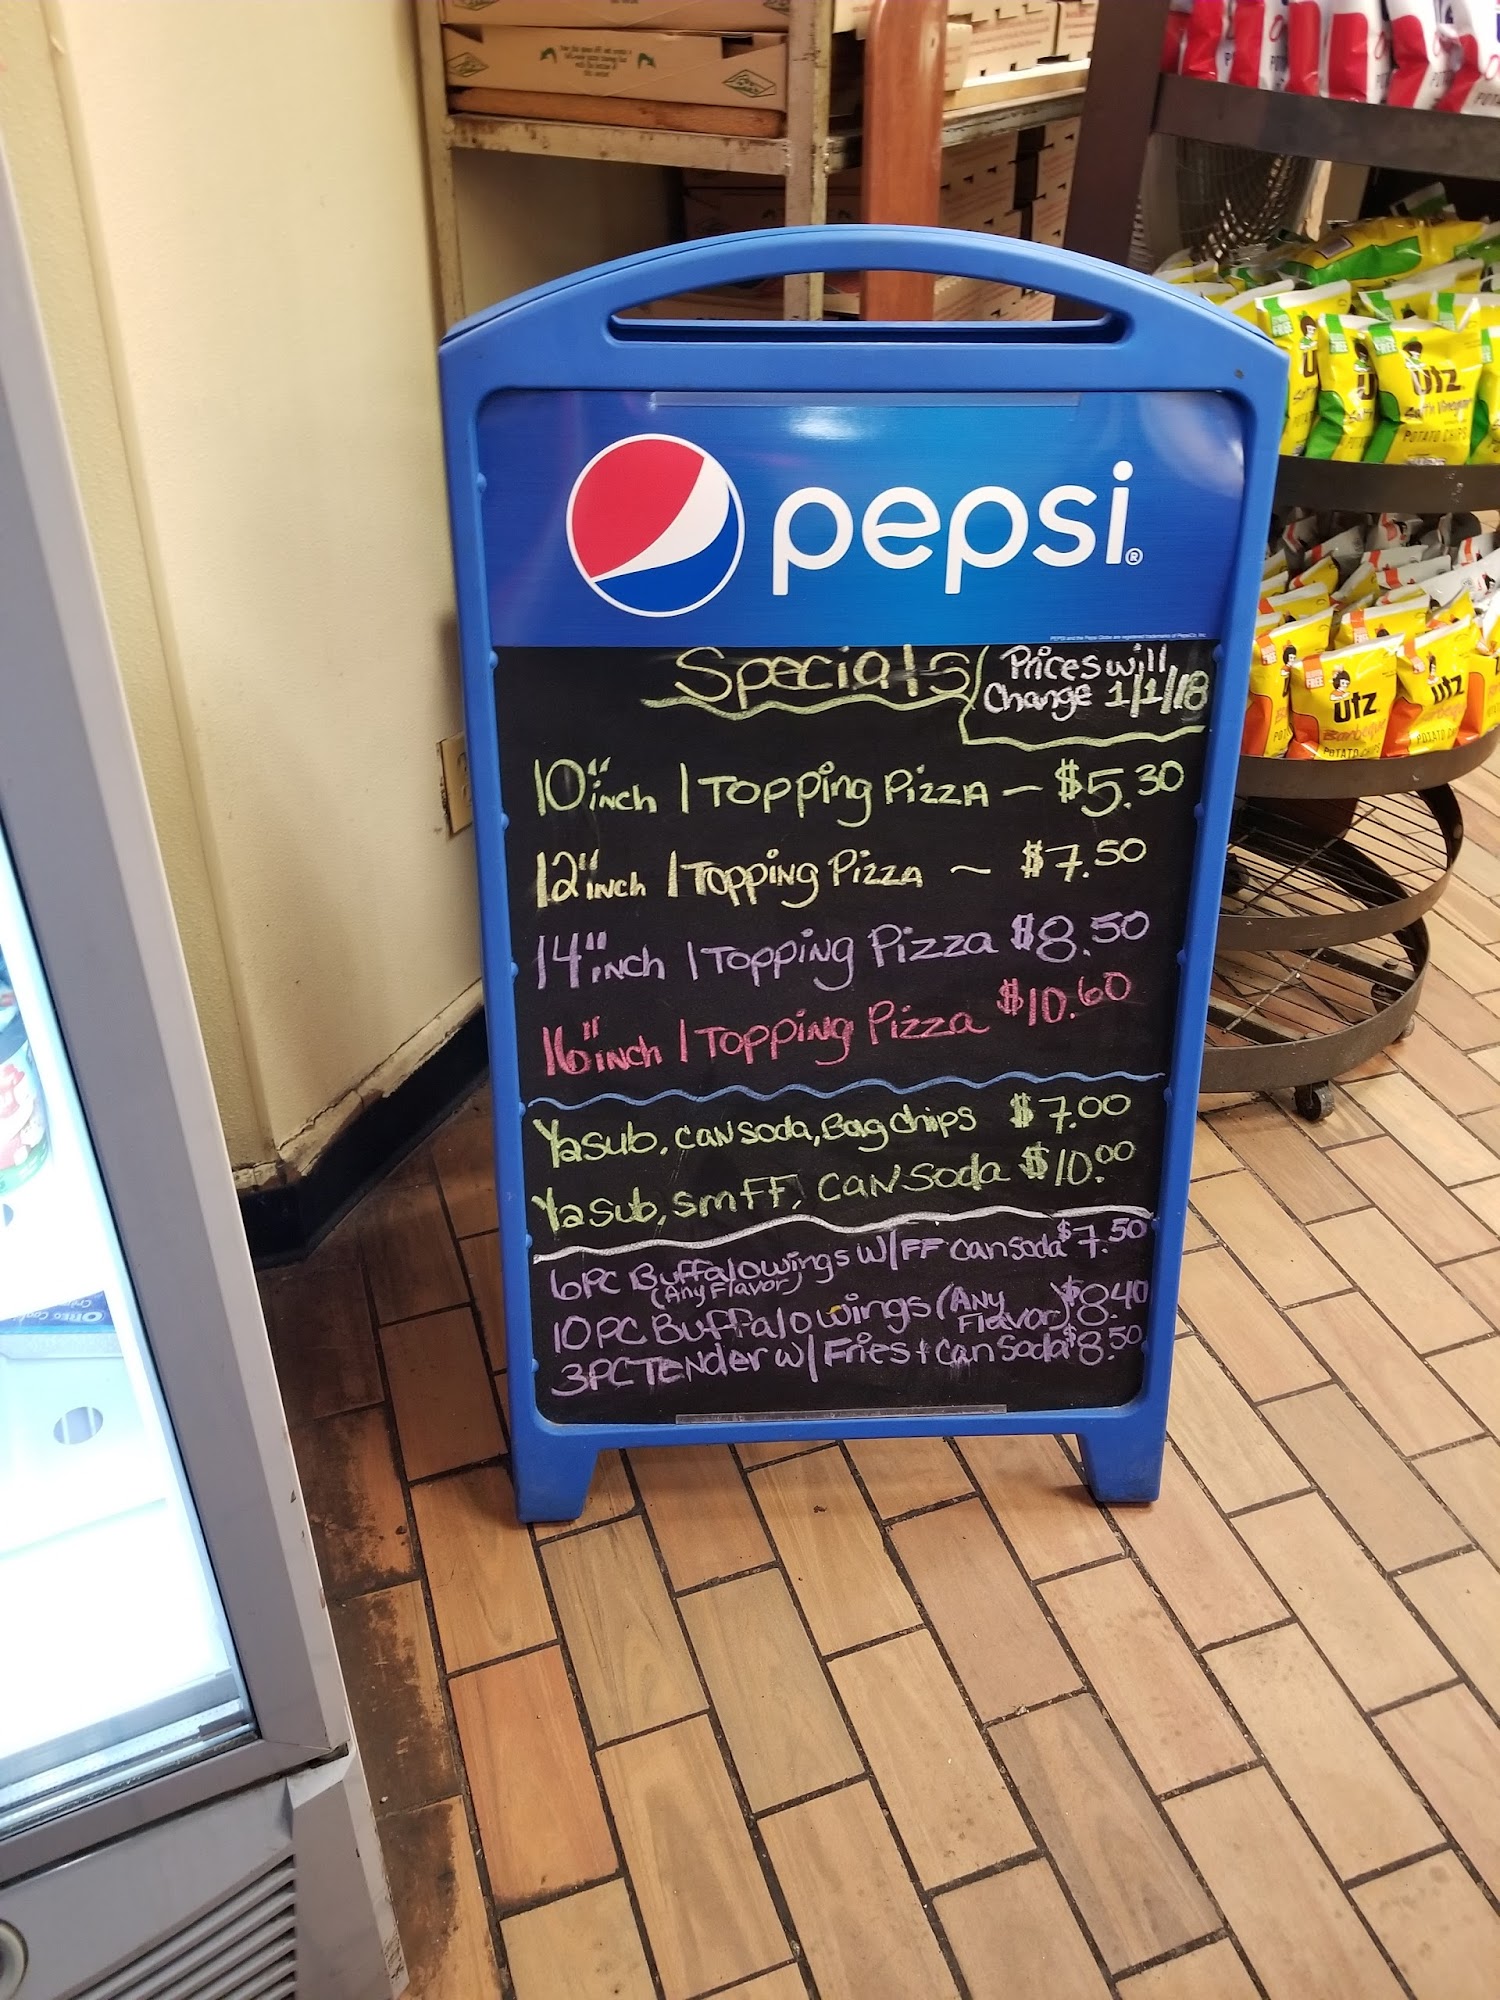 pepsi®
Specials
Prices will
Change 1/1/18
10" inch 1 Topping Pizza — $5.30
12" inch 1 Topping Pizza ~ $7.50
14" inch 1 Topping Pizza $8.50
16" inch 1 Topping Pizza $10.60
½ sub, can soda, Bag chips $7.00
½ sub, sm FF, can soda $10.00
6PC Buffalo wings w/FF can soda $7.50
(Any Flavor)
10PC Buffalo wings (Any Flavor) $8.40
3PC Tender w/ Fries + can soda $8.50
GLUTEN FREE
utz
Salt'n Vinegar
POTATO CHIPS
utz
Barbeque
POTATO CHIPS
utz
OREO